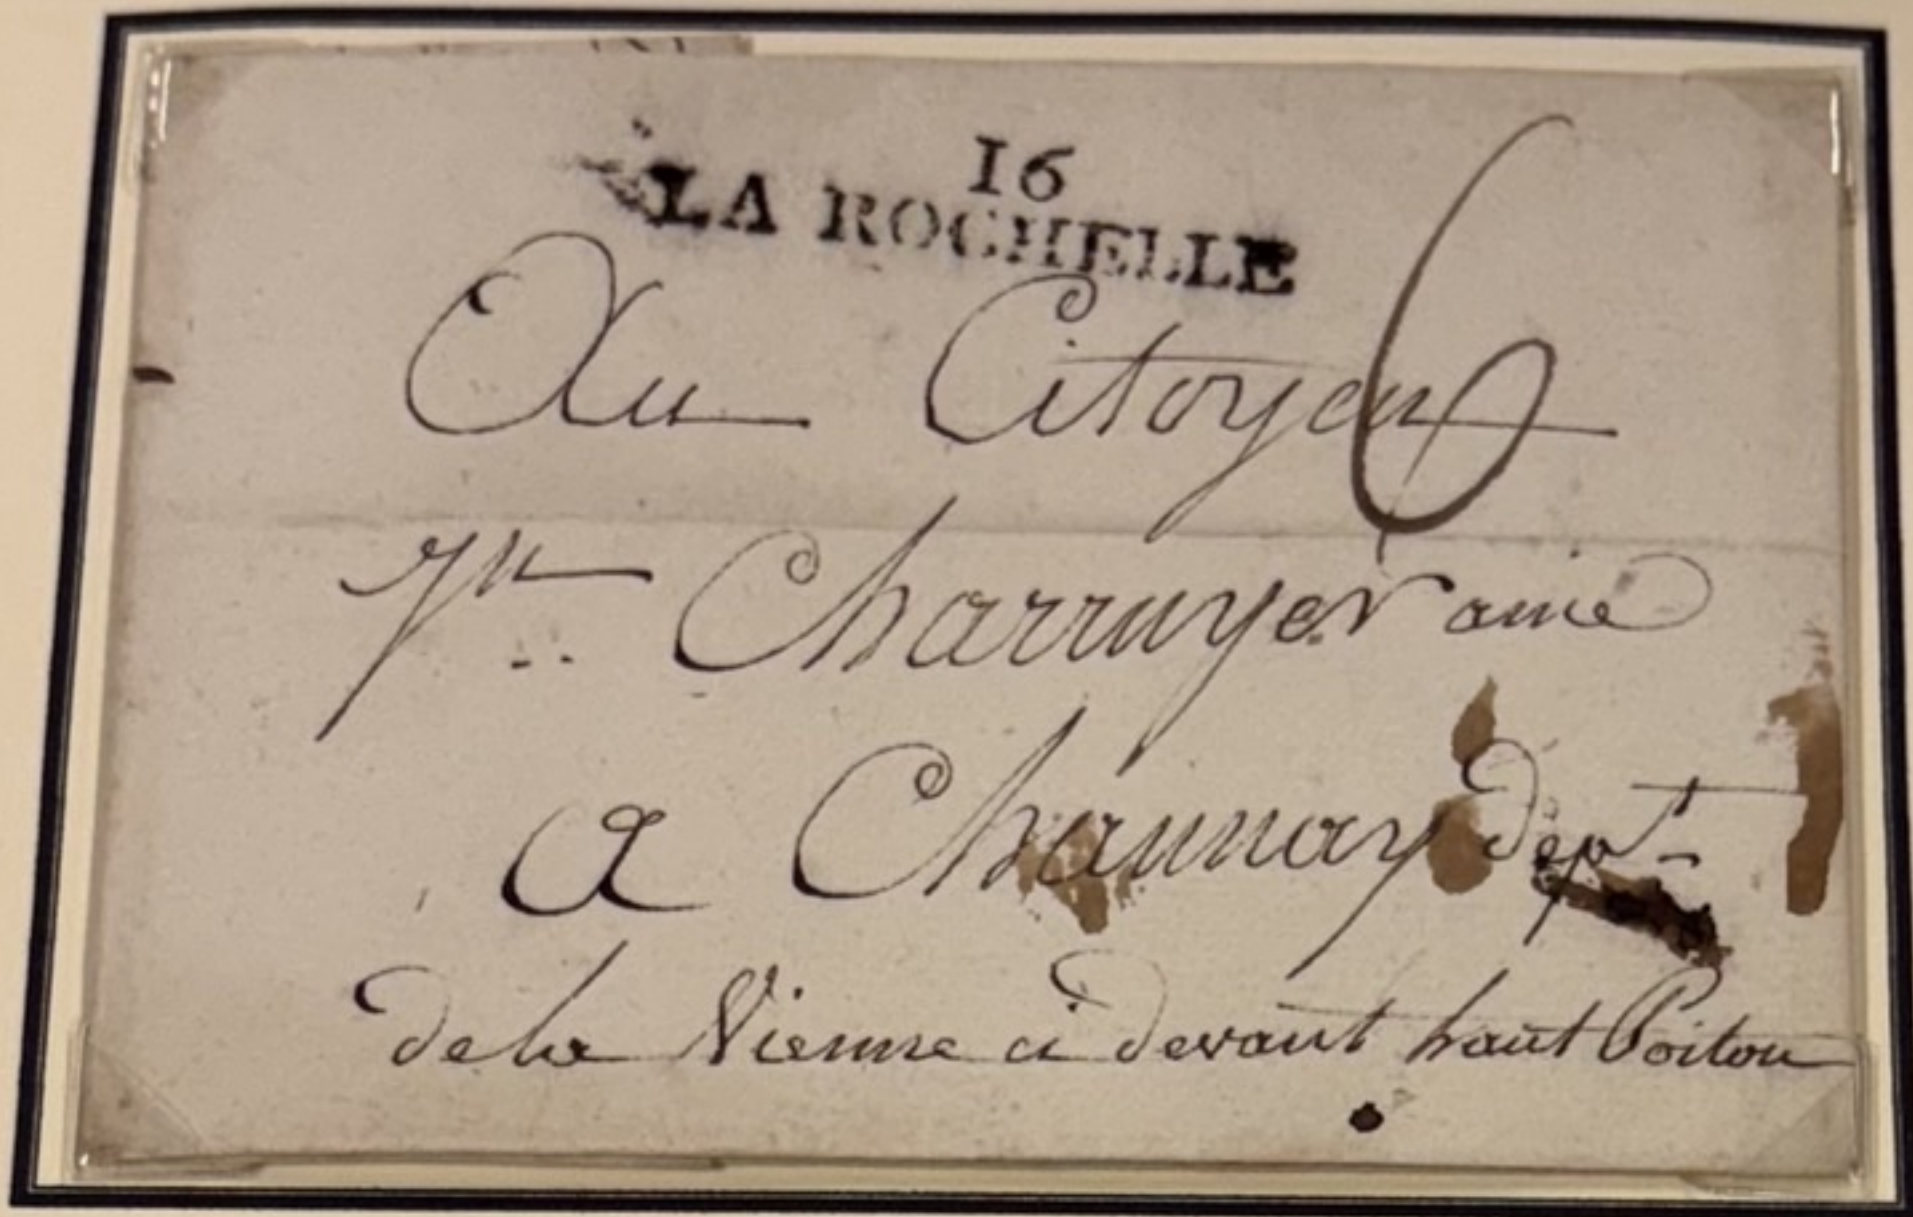 16
LA ROCHELLE
6
Au Citoyen
Jn Charruyer ainé
a Chaunay dept
de la Vienne ci devant haut Poitou